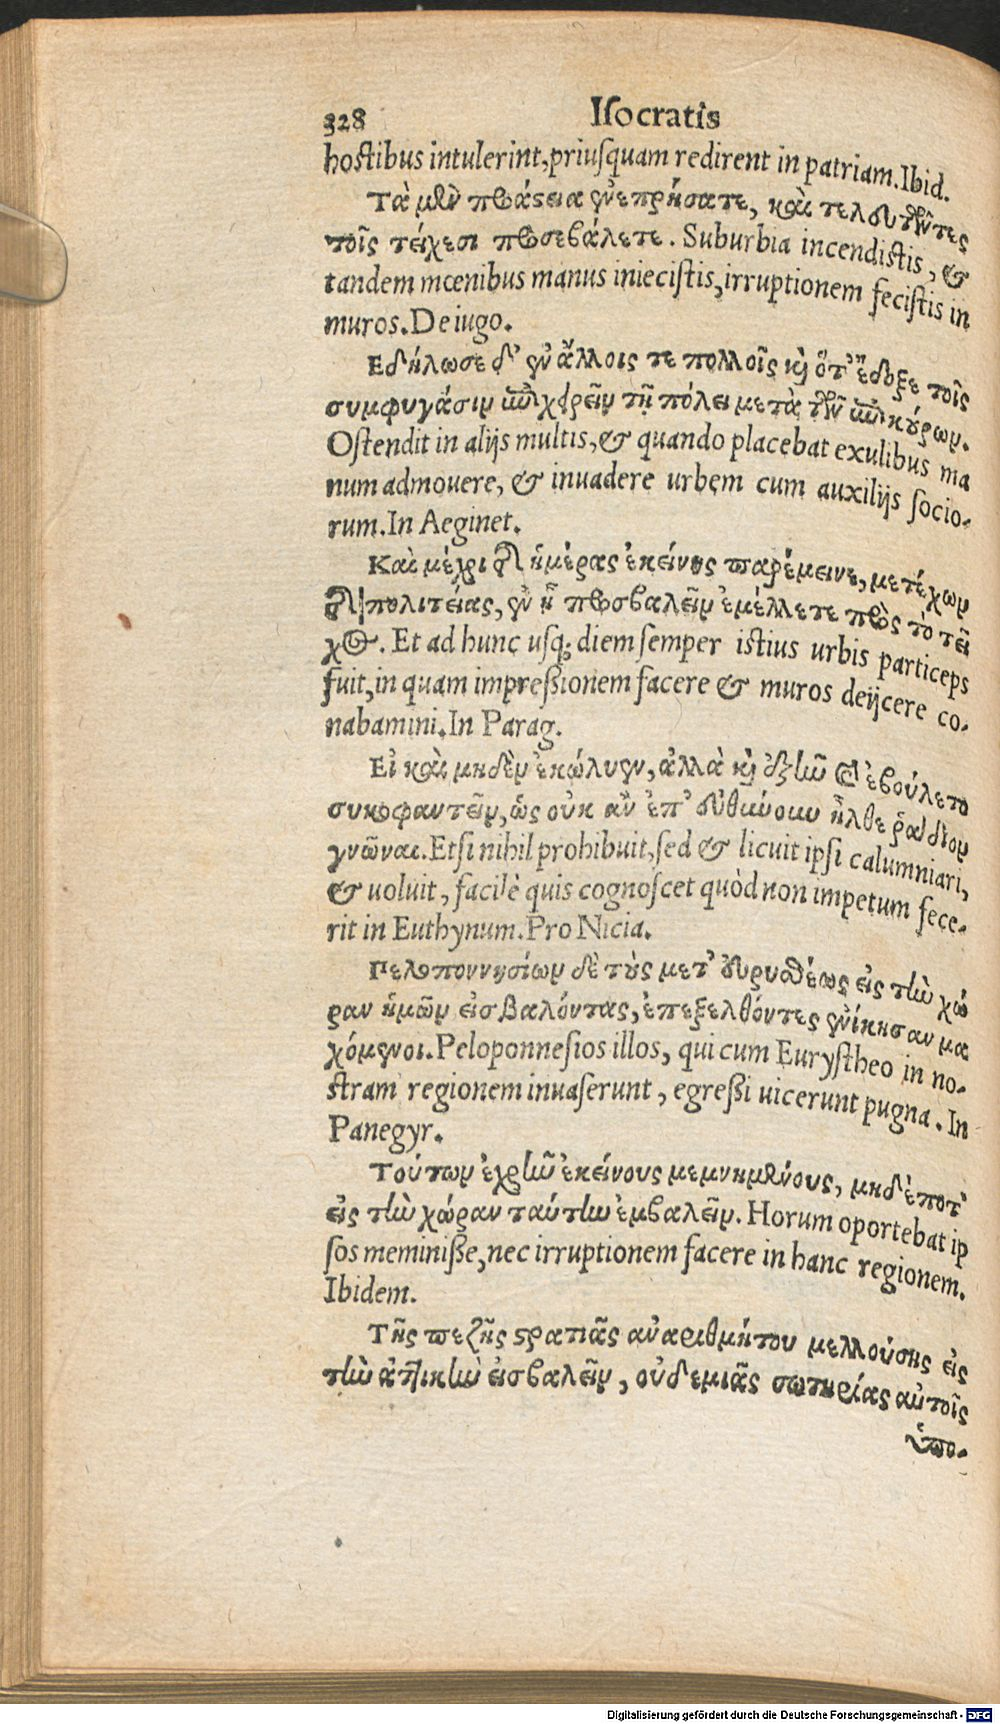 328 Iſocratis
hoſtibus intulerint, priuſquam redirent in patriam. Ibid.
Τὰ μὲν προάςεια ἐνεπρήσατε, καὶ τελευτῶντες
τοῖς τείχεσι προσεβάλετε. Suburbia incendiſtis, &
tandem mœnibus manus inieciſtis, irruptionem feciſtis in
muros. De iugo.
Εδήλωσε δ' ἐν ἄλλοις τε πολλοῖς κὶ ὅτ' ἔδοξε τοῖς
συμφυγάσιν ἐπιχειρεῖν τῇ πόλει μετὰ τῶν ἐπικούρων.
Oſtendit in alijs multis, & quando placebat exulibus ma
num admouere, & inuadere urbem cum auxilijs ſocio-
rum. In Aeginet.
Καὶ μέχρι τῆς ἡμέρας ἐκείνης παρέμεινε, μετέχων
τῆς πολιτείας, ἐν ᾗ προσβαλεῖν ἐμέλλετε πρὸς τὸ τεῖ
χος. Et ad hunc uſq; diem ſemper iſtius urbis particeps
fuit, in quam impreßionem facere & muros deijcere co-
nabamini. In Parag.
Εἰ καὶ μηδὲν ἐκώλυεν, ἀλλὰ κὶ ἐξῆν καὶ ἐβούλετο
συκοφαντεῖν, ὡς οὐκ ἂν ἐπ' εὐθύνουν ἦλθε ῥᾴδιον
γνῶναι. Etſi nihil prohibuit, ſed & licuit ipſi calumniari,
& uoluit, facilè quis cognoſcet quòd non impetum fece-
rit in Euthynum. Pro Nicia.
Πελοποννησίων δὲ τοὺς μετ' Εὐρυσθέως εἰς τὴν χώ
ραν ἡμῶν εἰσβαλόντας, ἐπεξελθόντες ἐνίκησαν μα
χόμενοι. Peloponneſios illos, qui cum Euryſtheo in no-
ſtram regionem inuaſerunt, egreßi uicerunt pugna. In
Panegyr.
Τούτων ἐχρῆν ἐκείνους μεμνημένους, μηδέποτ'
εἰς τὴν χώραν ταύτην ἐμβαλεῖν. Horum oportebat ip
ſos meminiße, nec irruptionem facere in hanc regionem.
Ibidem.
Τῆς πεζῆς ςρατιᾶς ἀναριθμήτου μελλούσης εἰς
τὴν ἀττικὴν εἰσβαλεῖν, οὐδεμιᾶς σωτηρίας αὐτοῖς
ὑπο-
Digitalisierung gefördert durch die Deutsche Forschungsgemeinschaft - DFG